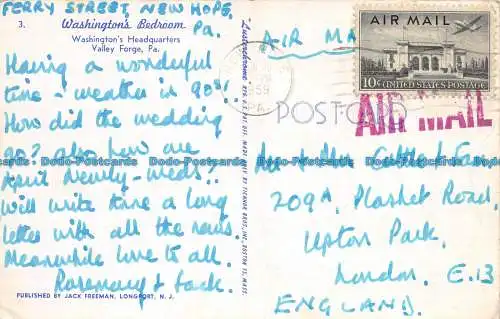 FERRY STREET, NEW HOPE,
Pa.
3. Washington's Bedroom
Washington's Headquarters
Valley Forge, Pa.
Having a wonderful
time - weather in 90's!
How did the wedding
go? also how are
April newly-weds..
Will write Irene a long
letter with all the news.
Meanwhile love to all.
Rosemary & Jack.
PUBLISHED BY JACK FREEMAN, LONGPORT, N. J.
"Lusterchrome"
REG. U.S. PAT. OFF. MADE ONLY BY TICHNOR BROS., INC., BOSTON 15, MASS.
AIR MAIL
AIR MAIL
10¢ UNITED STATES POSTAGE
1959
PA.
POST CARD
AIR MAIL
Mr & Mrs
209A, Plashet Road,
Upton Park,
London, E.13
ENGLAND.
Dodo-Postcards Dodo-Postcards Dodo-Postcards Dodo-Postcards